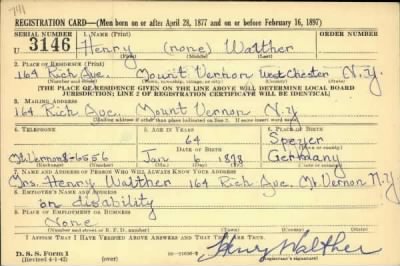 741
REGISTRATION CARD—(Men born on or after April 28, 1877 and on or before February 16, 1897)
SERIAL NUMBER 1. NAME (Print) ORDER NUMBER
U 3146 Henry (none) Walther
2. PLACE OF RESIDENCE (Print)
164 Rich Ave. Mount Vernon West Chester N.Y.
(Number and street) (Town, township, village, or city) (County) (State)
[THE PLACE OF RESIDENCE GIVEN ON THE LINE ABOVE WILL DETERMINE LOCAL BOARD
JURISDICTION; LINE 2 OF REGISTRATION CERTIFICATE WILL BE IDENTICAL]
3. MAILING ADDRESS
164 Rich Ave. Mount Vernon N.Y
[Mailing address if other than place indicated on line 2. If same insert word same]
4. TELEPHONE 5. AGE IN YEARS 6. PLACE OF BIRTH
64 Speyer
DATE OF BIRTH (Town or county)
Mt. Vernon 8-6556 Jan 6 1878 Germany
(Exchange) (Number) (Mo.) (Day) (Yr.) (State or country)
7. NAME AND ADDRESS OF PERSON WHO WILL ALWAYS KNOW YOUR ADDRESS
Mrs. Henry Walther 164 Rich Ave. Mt. Vernon N.Y
8. EMPLOYER'S NAME AND ADDRESS
on disability
9. PLACE OF EMPLOYMENT OR BUSINESS
None
(Number and street or R. F. D. number) (Town) (County) (State)
I AFFIRM THAT I HAVE VERIFIED ABOVE ANSWERS AND THAT THEY ARE TRUE.
D. S. S. Form 1 Henry Walther
(Revised 4-1-42) (over) (Registrant's signature)